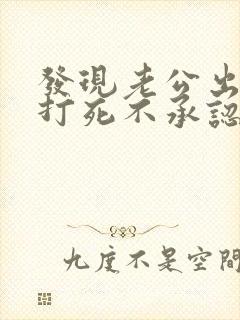 發現老公出
打死不承認
九度不是空間